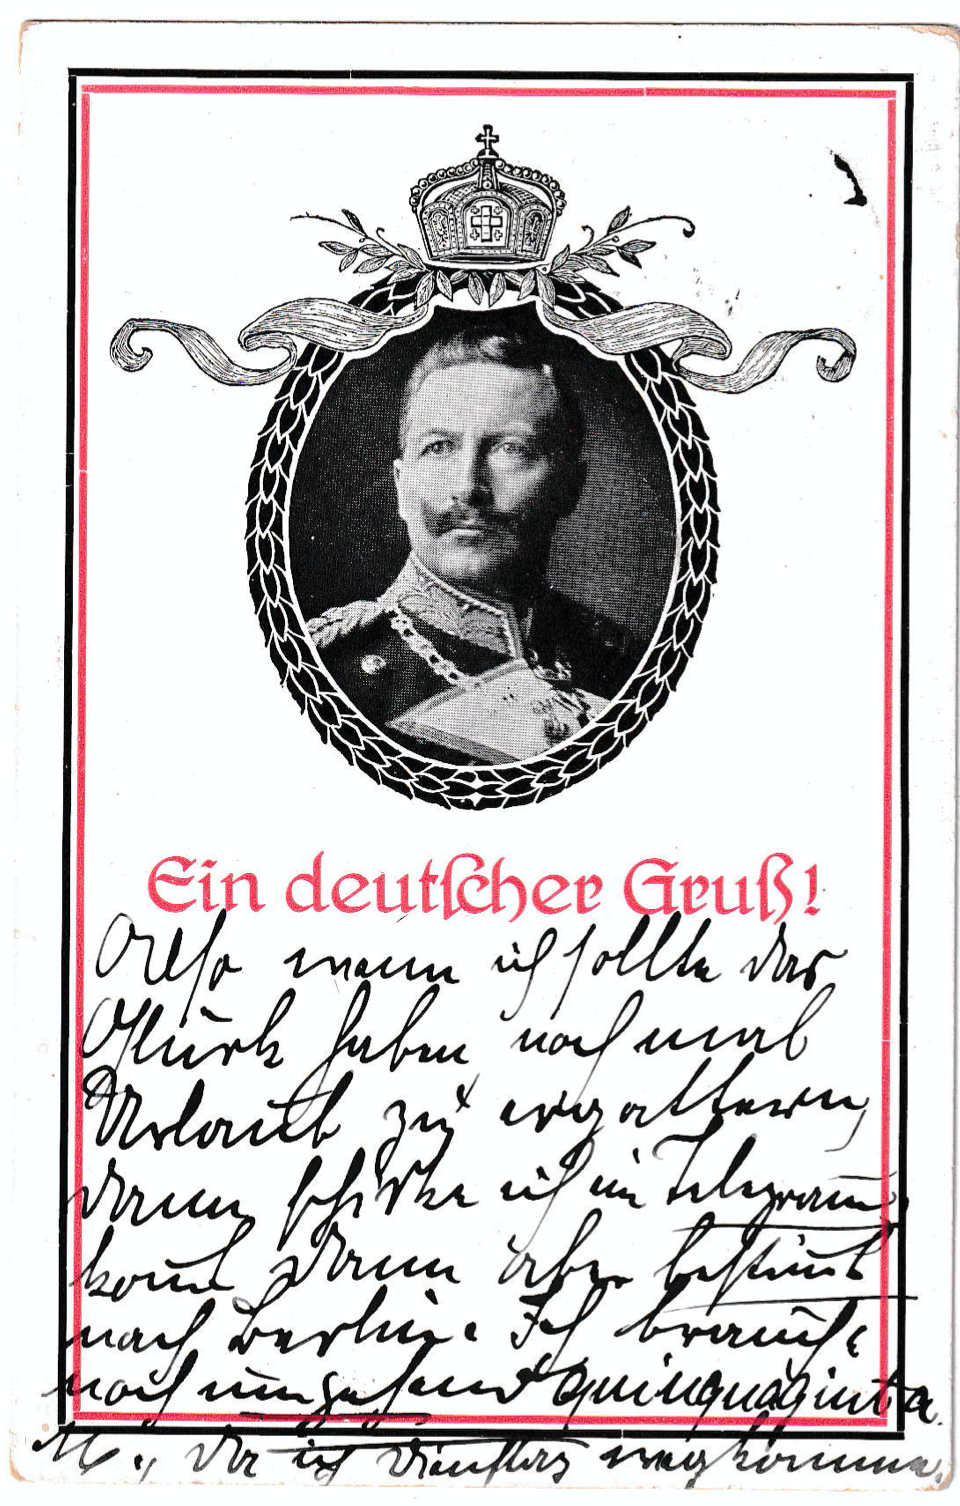 Ein deutscher Gruß!
Also wenn ich sollte das
Glück haben noch mal
Urlaub zu ergattern,
dann schicke ich ein Telegram̅
kom̅t dann aber bestim̅t
nach Berlin. Ich brauche
noch umgehend quinquaginta
M., da ich Dienstag wegkomme.